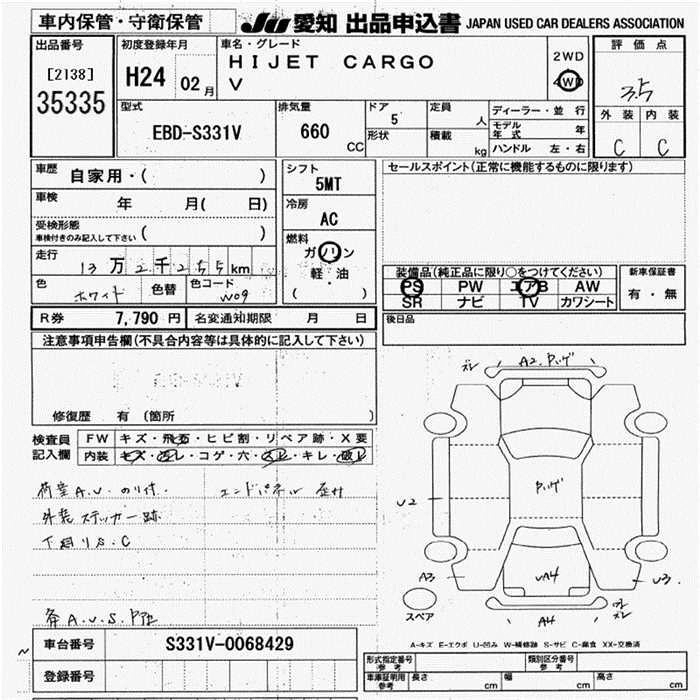 車内保管・守衛保管
JU 愛知 出品申込書 JAPAN USED CAR DEALERS ASSOCIATION
出品番号
[2138]
35335
初度登録年月
H24 02月
車名・グレード
HIJET CARGO
V
2WD
4WD
評価点
3.5
外装 内装
C C
型式
EBD-S331V
排気量
660
CC
ドア
5
形状
定員
人
積載
kg
ディーラー・並行
モデル年式 年
ハンドル 左・右
車歴
自家用・( )
車検
年 月( 日)
受検形態
車検付きのみ記入して下さい ( )
走行
13万2千255km
色
ホワイト
色替
色コード
W09
シフト
5MT
冷房
AC
燃料
ガソリン
軽・油
( )
セールスポイント(正常に機能するものに限ります)
装備品(純正品に限り○をつけてください)
PS PW エアB AW
SR ナビ TV カワシート
新車保証書
有・無
R券 7,790円 名変通知期限 月 日
後日品
注意事項申告欄(不具合内容等は具体的に記入して下さい)
EBD-S331V
修復歴 有 (箇所 )
検査員記入欄
FW キズ・飛石・ヒビ割・リペア跡・X要
内装 キズ・汚レ・コゲ・穴・スレ・キレ・破レ
荷室A.U.のり付. エンドパネル 歪み
外装 ステッカー跡
下廻りS.C
A2.
U2
A3
A4
U3
スペア
A-キズ E-エクボ U-凹み W-補修跡 S-サビ C-腐食 XX-交換済
車台番号 S331V-0068429
登録番号
形式指定番号 参考
類別区分番号 参考
車庫証明用 参考 長さ cm 幅 cm 高さ cm